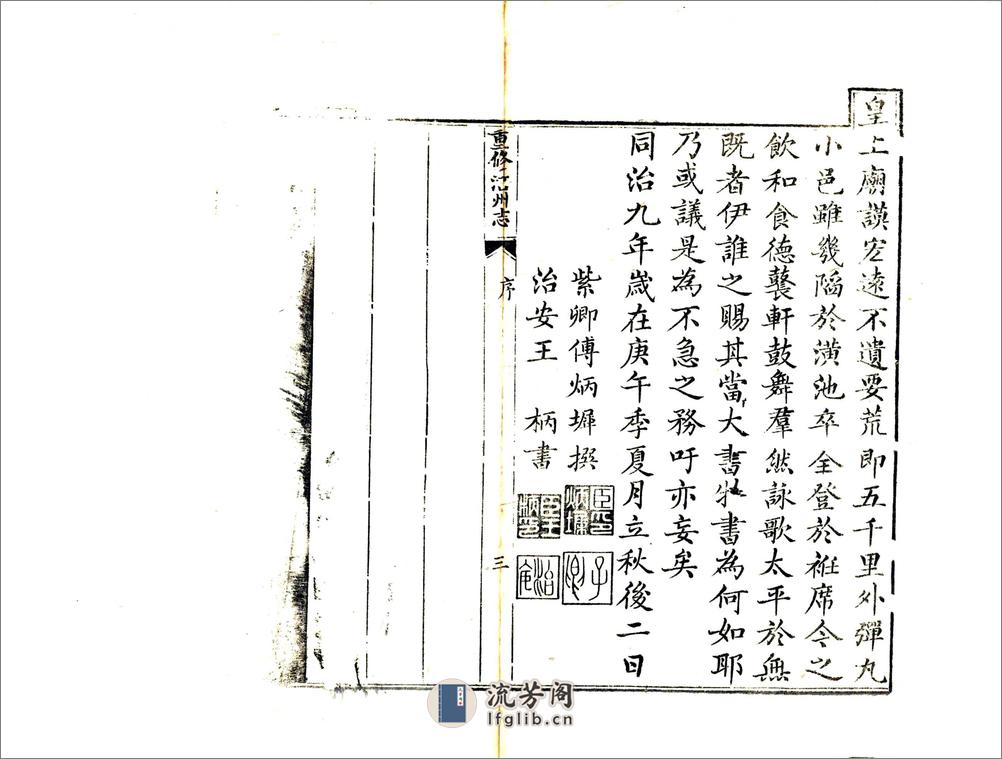 皇上廟謨宏遠不遺要荒即五千里外彈丸
小邑雖幾陷於潢池卒全登於袵席令之
飲和食德襲軒鼓舞羣然詠歌太平於無
既者伊誰之賜其當大書特書為何如耶
乃或議是為不急之務吁亦妄矣
同治九年歲在庚午季夏月立秋後二日
紫卿傅炳墀撰
臣炳墀印
治安王 柄書
臣王柄印
治安
重修涪州志
序
三
流芳阁
lfglib.cn